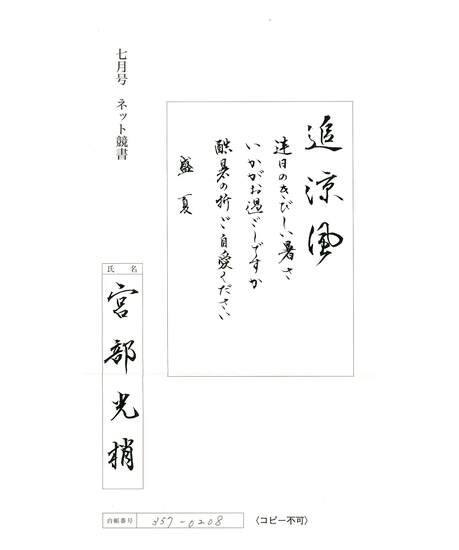 七月号 ネット競書
追涼風
連日のきびしい暑さ
いかがお過ごしですか
酷暑の折ご自愛ください
盛夏
氏名
宮部光梢
台帳番号 357-0208
(コピー不可)